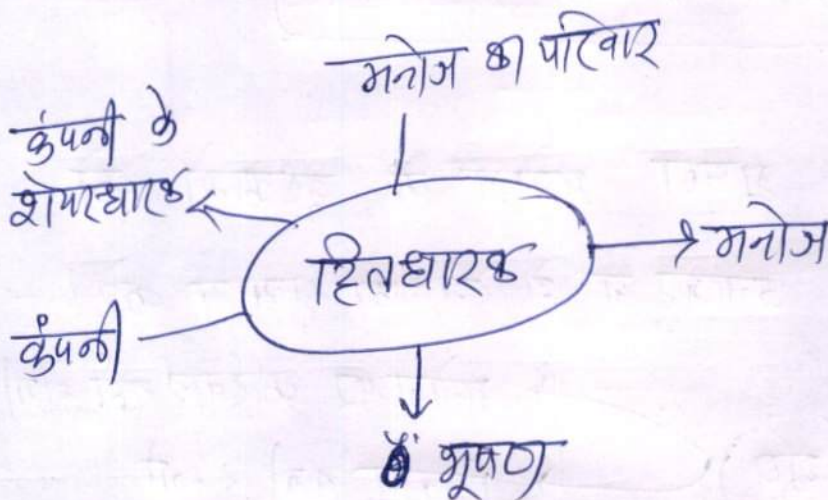 मनोज का परिवार
कंपनी के
शेयरधारक
हितधारक
मनोज
कंपनी
भूषण